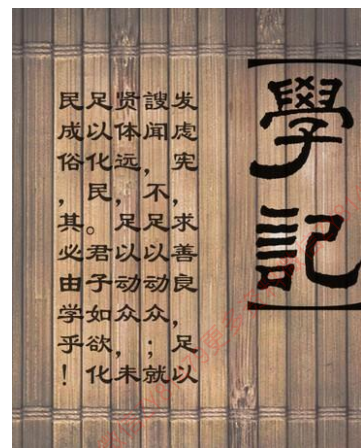 【學記】
发虑宪，求善良，足以
謏闻，不足以动众；就
贤体远，足以动众，未
足以化民。君子如欲化
民成俗，其必由学乎！